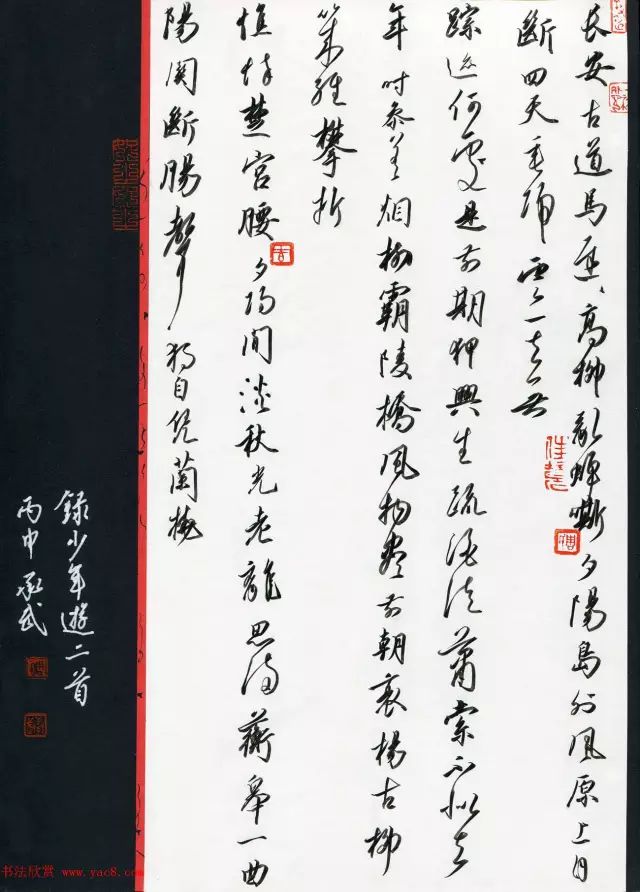 長安古道馬遲、高柳亂蟬嘶夕陽島外風原上目
斷四天垂歸雲一去無
蹤迹何處是前期狎興生疏酒徒蕭索不似去
年時參差烟樹霸陵橋風物盡前朝衰楊古柳
幾經攀折
憔悴楚宮腰夕陽閒淡秋光老離思滿蘅皋一曲
陽関斷腸聲獨自凭蘭橈
錄少年遊二首
丙申承武
书法欣赏 www.yac8.com